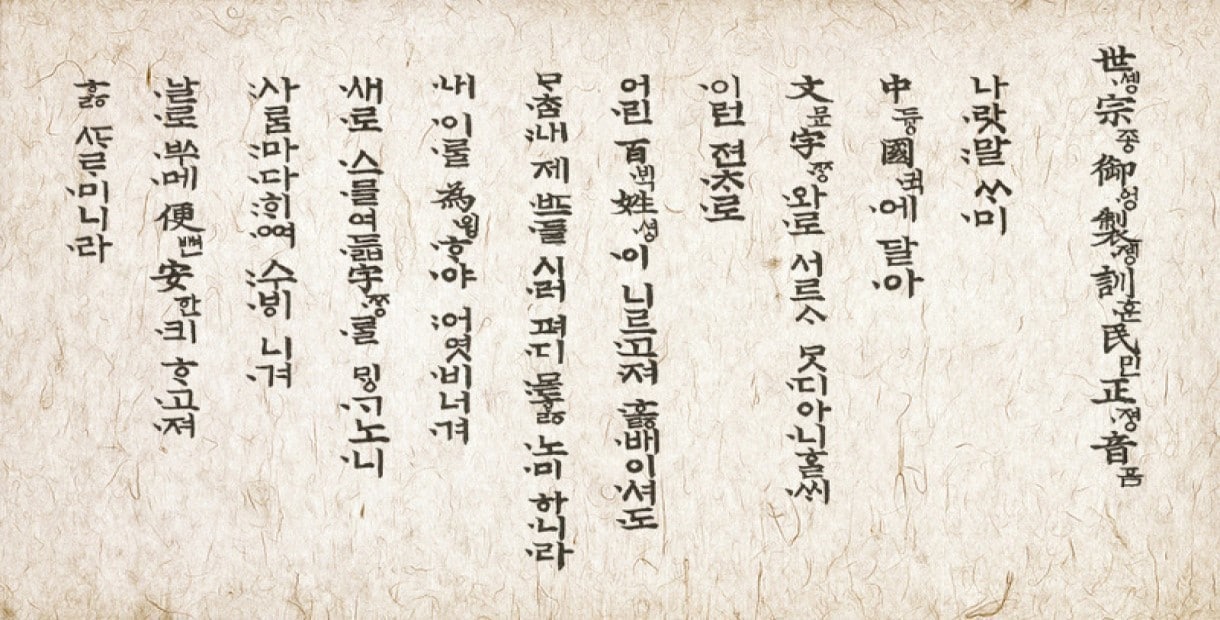 世·솅宗종御·엉製·졩訓·훈民민正·졍音ᅙᅳᆷ
나·랏:말ᄊᆞ·미
中듕國귁·에 달·아
文문字·ᄍᆞᆼ·와·로 서르ᄉᆞ ᄆᆞᆺ·디아·니ᄒᆞᆯ·ᄊᆡ
·이런 젼·ᄎᆞ·로
어·린 百·ᄇᆡᆨ姓·셩·이 니르·고·져 ·홇·배이·셔·도
ᄆᆞ·ᄎᆞᆷ:내 제 ·ᄠᅳ·들 시·러 펴·디 :몯ᄒᆞᇙ ·노·미 하·니·라
·내 ·이·ᄅᆞᆯ 為·윙·ᄒᆞ·야 :어엿·비너·겨
·새·로 ·스·믈여·듧字·ᄍᆞᆼ·ᄅᆞᆯ ᄆᆡᇰ·ᄀᆞ노·니
:사ᄅᆞᆷ:마·다:ᄒᆡ·ᅇᅧ :수·ᄫᅵ 니·겨
·날·로·ᄡᅮ·메 便뼌安한·킈 ᄒᆞ·고·져
ᄒᆞᇙ ᄯᆞᄅᆞ·미니·라